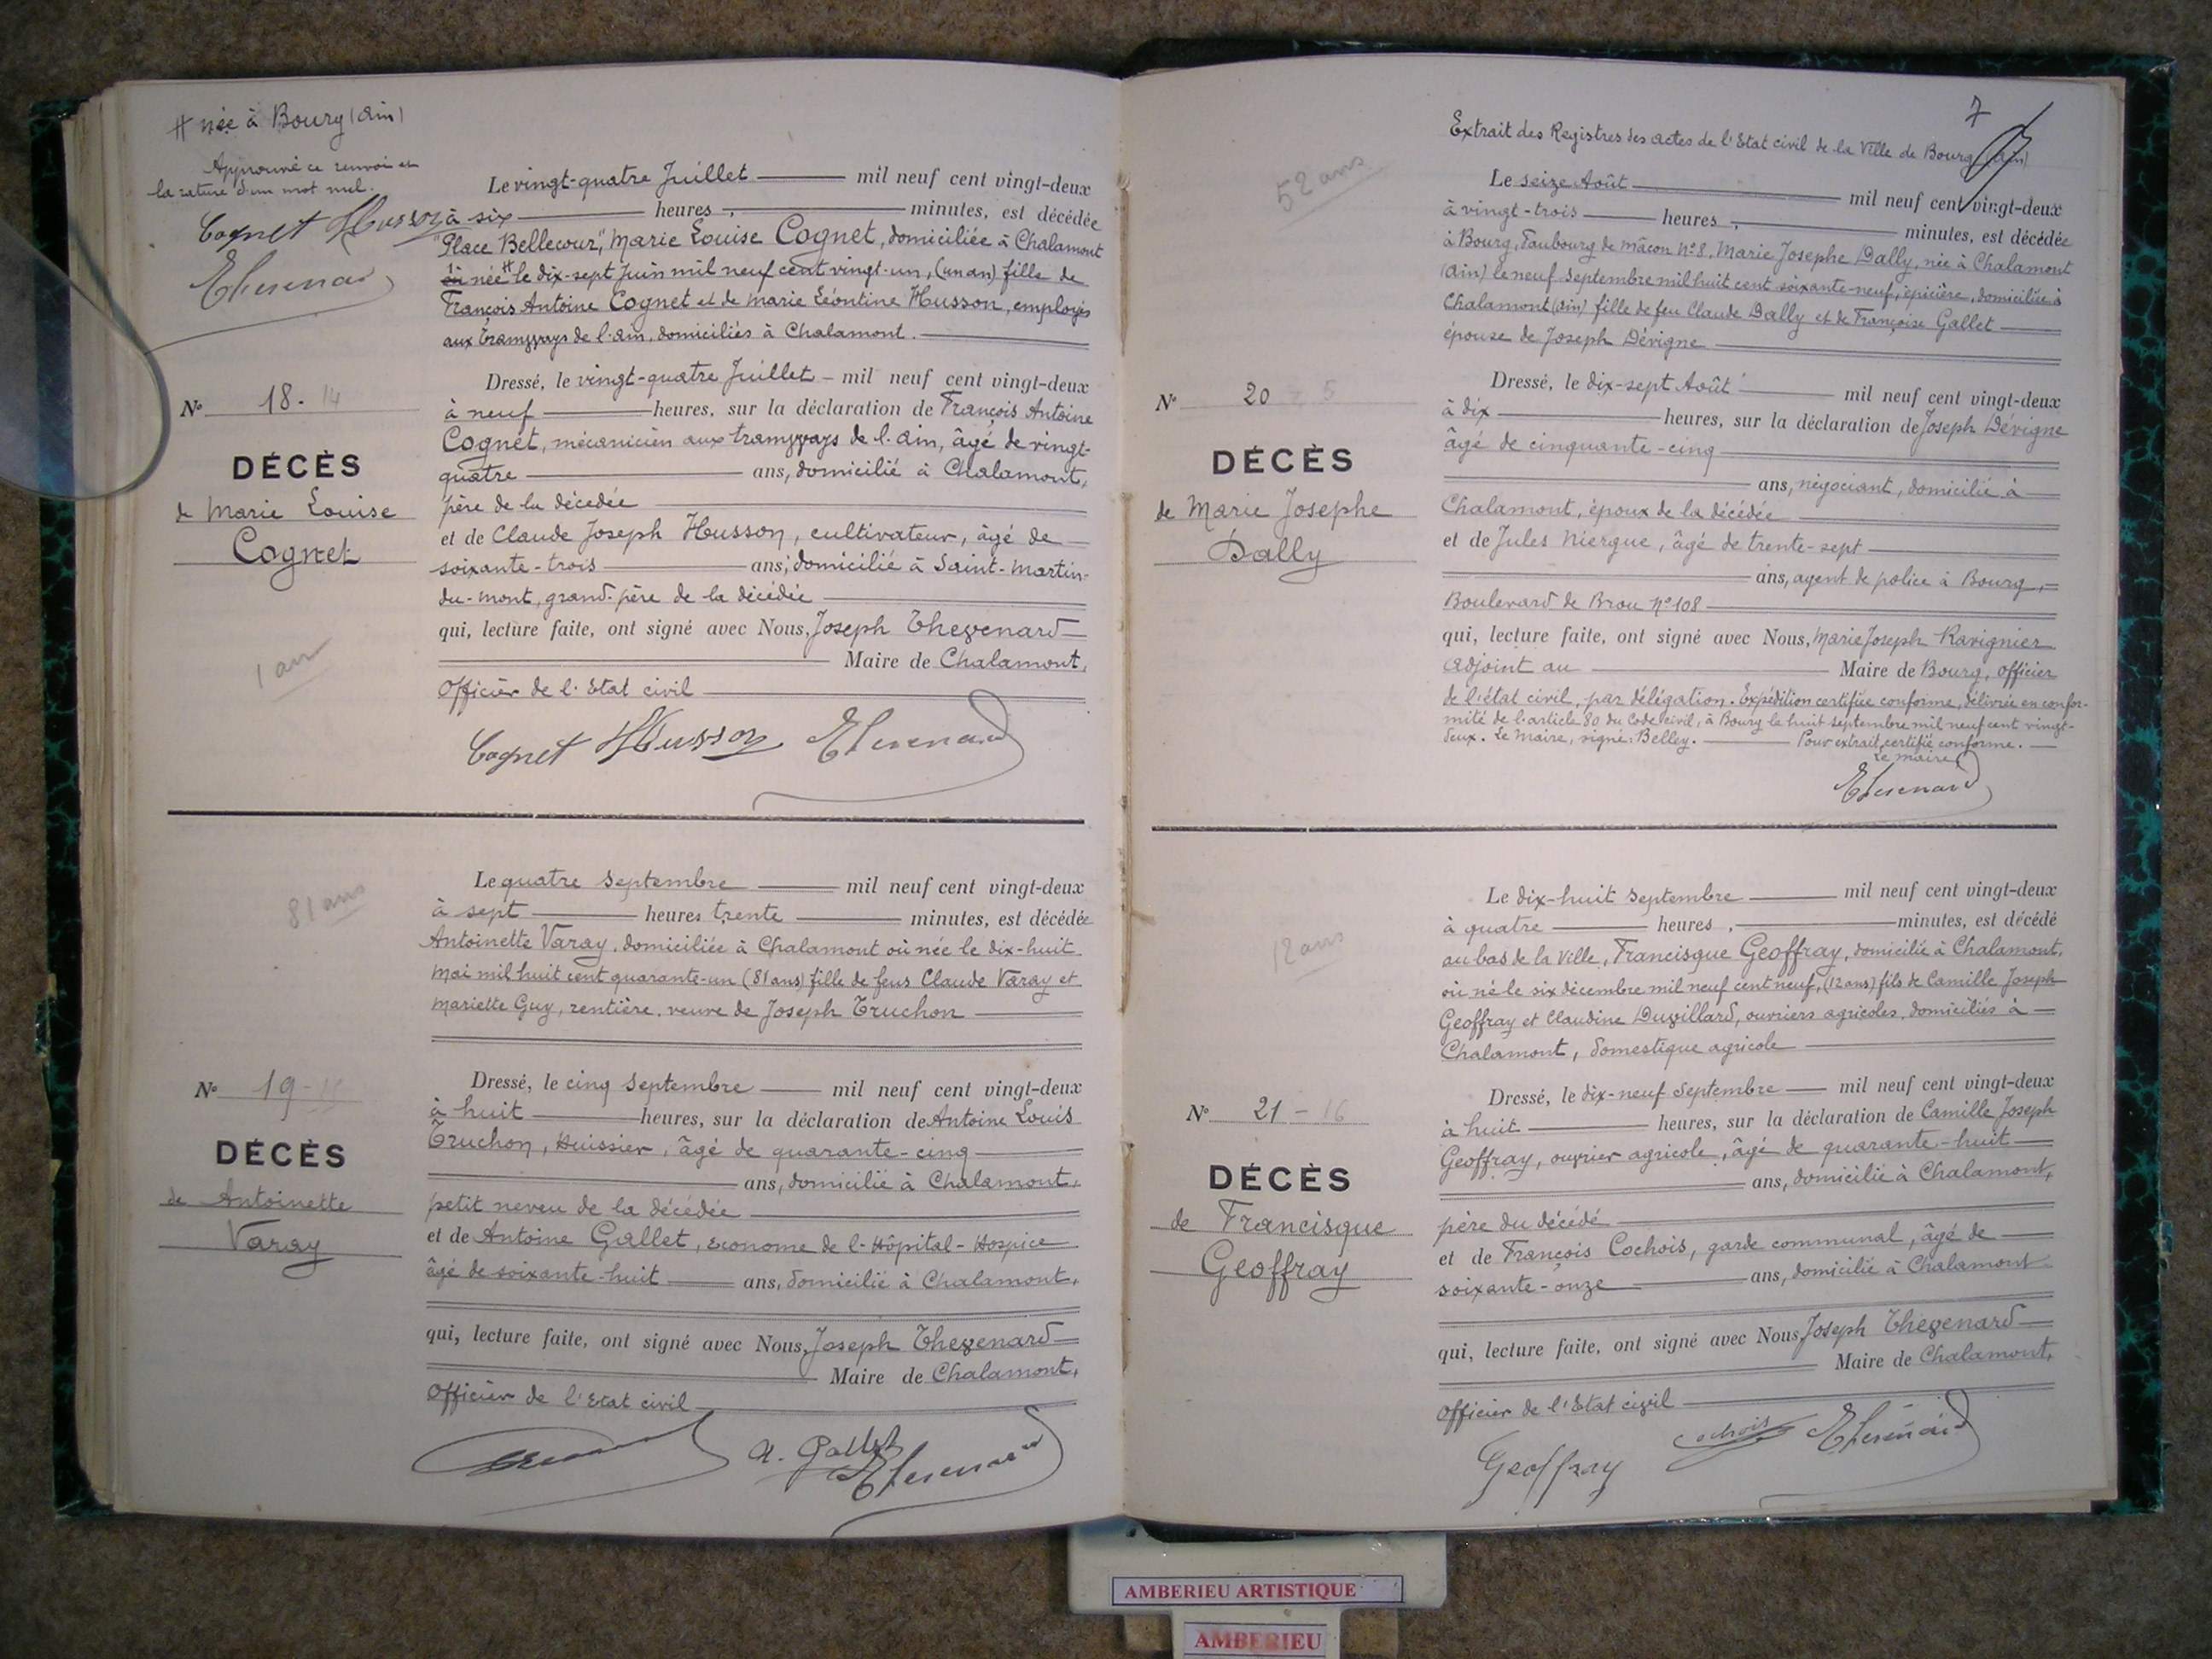 # née à Bourg (Ain)
Approuvé ce renvoi et
la rature d'un mot nul.
Cognet Husson
Thevenard
Le vingt-quatre Juillet mil neuf cent vingt-deux
à six heures, minutes, est décédée
"Place Bellecour", Marie Louise Cognet, domiciliée à Chalamont
née # le dix-sept Juin mil neuf cent vingt-un, (un an) fille de
François Antoine Cognet et de Marie Léontine Husson, employés
aux tramways de l'Ain, domiciliés à Chalamont.
N° 18. 14
DÉCÈS
de Marie Louise
Cognet
1 an
Dressé, le vingt-quatre Juillet - mil neuf cent vingt-deux
à neuf heures, sur la déclaration de François Antoine
Cognet, mécanicien aux tramways de l'Ain, âgé de vingt-
quatre ans, domicilié à Chalamont,
père de la décédée
et de Claude Joseph Husson, cultivateur, âgé de
soixante-trois ans, domicilié à Saint-Martin-
du-Mont, grand-père de la décédée
qui, lecture faite, ont signé avec Nous, Joseph Thevenard
Maire de Chalamont,
Officier de l'Etat civil
Cognet Husson Thevenard
81 ans
Le quatre Septembre mil neuf cent vingt-deux
à sept heures trente minutes, est décédée
Antoinette Varay, domiciliée à Chalamont où née le dix-huit
Mai mil huit cent quarante-un (81 ans) fille de feus Claude Varay et
Mariette Guy, rentière, veuve de Joseph Truchon
N° 19 -
DÉCÈS
de Antoinette
Varay
Dressé, le cinq Septembre mil neuf cent vingt-deux
à huit heures, sur la déclaration de Antoine Louis
Truchon, Huissier, âgé de quarante-cinq
ans, domicilié à Chalamont,
petit neveu de la décédée
et de Antoine Gallet, Econome de l'Hôpital-Hospice
âgé de soixante-huit ans, domicilié à Chalamont,
qui, lecture faite, ont signé avec Nous, Joseph Thevenard
Maire de Chalamont,
Officier de l'Etat civil
A. Gallet
Thevenard
7
Extrait des Registres des actes de l'Etat civil de la Ville de Bourg (Ain)
52 ans
Le seize Août mil neuf cent vingt-deux
à vingt-trois heures, minutes, est décédée
à Bourg, Faubourg de Mâcon N° 8, Marie Josephe Dally, née à Chalamont
(Ain) le neuf Septembre mil huit cent soixante-neuf, épicière, domiciliée à
Chalamont (Ain) fille de feu Claude Dally et de Françoise Gallet
épouse de Joseph Dévigne
N° 20 - 5
DÉCÈS
de Marie Josephe
Dally
Dressé, le dix-sept Août mil neuf cent vingt-deux
à dix heures, sur la déclaration de Joseph Dévigne
âgé de cinquante-cinq
ans, négociant, domicilié à
Chalamont, époux de la décédée
et de Jules Niergue, âgé de trente-sept
ans, agent de police à Bourg,
Boulevard de Brou N° 108
qui, lecture faite, ont signé avec Nous, Marie Joseph Ravignier
adjoint au Maire de Bourg, officier
de l'état civil, par délégation. Expédition certifiée conforme, délivrée en confor-
mité de l'article 80 du Code civil, à Bourg le huit septembre mil neuf cent vingt-
deux. Le Maire, signé: Belley. Pour extrait certifié conforme.
Le Maire
Thevenard
12 ans
Le dix-huit Septembre mil neuf cent vingt-deux
à quatre heures, minutes, est décédé
au bas de la Ville, Francisque Geoffray, domicilié à Chalamont,
où né le six décembre mil neuf cent neuf, (12 ans) fils de Camille Joseph
Geoffray et Claudine Duvillard, ouvriers agricoles, domiciliés à
Chalamont, domestique agricole
N° 21 - 16
DÉCÈS
de Francisque
Geoffray
Dressé, le dix-neuf Septembre mil neuf cent vingt-deux
à huit heures, sur la déclaration de Camille Joseph
Geoffray, ouvrier agricole, âgé de quarante-huit
ans, domicilié à Chalamont,
père du décédé
et de François Cochois, garde communal, âgé de
soixante-onze ans, domicilié à Chalamont
qui, lecture faite, ont signé avec Nous, Joseph Thevenard
Maire de Chalamont,
Officier de l'Etat civil
Geoffray Cochois Thevenard
AMBERIEU ARTISTIQUE
AMBERIEU